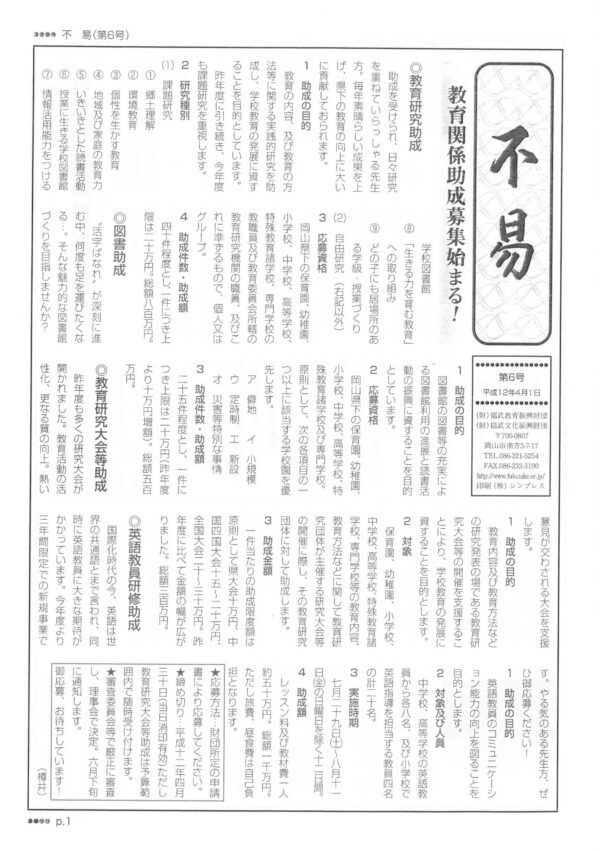 不　易(第6号)
不易
教育関係助成募集始まる!
◎教育研究助成
　助成を受けられ、日々研究
を重ねていらっしゃる先生
方。毎年素晴らしい成果を上
げ、県下の教育の向上に大い
に貢献しておられます。
1 助成の目的
　教育の内容、及び教育の方
法等に関する実践的研究を助
成し、学校教育の発展に資す
ることを目的としています。
　昨年度に引き続き、今年度
も課題研究を重視します。
2 研究種別
(1) 課題研究
① 郷土理解
② 環境教育
③ 個性を生かす教育
④ 地域及び家庭の教育力
⑤ いきいきとした読書活動
⑥ 授業に生きる学校図書館
⑦ 情報活用能力をつける
学校図書館
⑧ 「生きる力を育む教育」
への取り組み
⑨ どの子にも居場所のあ
る学級・授業づくり
(2) 自由研究 (右記以外)
3 応募資格
　岡山県下の保育園、幼稚園、
小学校、中学校、高等学校、
特殊教育諸学校、専門学校の
教職員及び教育委員会所轄の
教育研究機関の職員、及びこ
れに準ずるもので、個人又は
グループ。
4 助成件数・助成額
　四十件程度とし、一件につき上
限は二十万円。総額八百万円。
◎図書助成
　“活字ばなれ”が深刻に進
む中、何度も足を運びたくな
る…。そんな魅力的な図書館
づくりを目指しませんか?
第6号
平成12年4月1日
(財)福武教育振興財団
(財)福武文化振興財団
〒700-0807
岡山市南方3-7-17
TEL.086-221-5254
FAX.086-232-3190
http://www.fukutake.or.jp/
印刷 (株) シンプレス
1 助成の目的
　図書館の図書等の充実によ
る図書館利用の進展と読書活
動の振興に資することを目的
としています。
2 応募資格
　岡山県下の保育園、幼稚園、
小学校、中学校、高等学校、特
殊教育諸学校及び専門学校。
原則として、次の各項目の一
つ以上に該当する学校園を優
先します。
ア 僻地　イ 小規模
ウ 定時制　エ 新設
オ 災害等特別な事情
3 助成件数・助成額
　二十五件程度とし、一件に
つき上限は二十万円(昨年度
より十万円増額)。総額五百
万円。
◎教育研究大会等助成
　昨年度も多くの研究大会が
開かれました。教育活動の活
性化、更なる質の向上。熱い
意見が交わされる大会を支援
します。
1 助成の目的
　教育内容及び教育方法など
の研究発表の場である教育研
究大会等の開催を支援するこ
とにより、学校教育の発展に
資することを目的とします。
2 対象
　保育園、幼稚園、小学校、
中学校、高等学校、特殊教育諸
学校、専門学校等の教育内容、
教育方法などに関して教育研
究団体が主催する研究大会等
の開催に際し、その教育研究
団体に対して助成します。
3 助成金額
　一件当たりの助成限度額は
原則として県大会十万円、中
国四国大会十五～二十万円、
全国大会二十～三十万円。昨
年度に比べて金額の幅が広が
りました。総額三百万円。
◎英語教員研修助成
　国際化時代の今、英語は世
界の共通語とまで言われ、同
時に英語教員に大きな期待が
かかっています。今年度より
三年間限定での新規事業で
す。やる気のある先生方、ぜ
ひ御応募ください!
1 助成の目的
　英語教員のコミュニケーシ
ョン能力の向上を図ることを
目的とします。
2 対象及び人員
　中学校、高等学校の英語教
員から各八名、及び小学校で
英語指導を担当する教員四名
の計二十名。
3 実施時期
　七月二十九日(土)~八月十一
日(金)の日曜日を除く十二日間。
4 助成額
　レッスン料及び教材費一人
約五十万円。総額一千万円。
ただし旅費、昼食費は自己負
担となります。
★応募方法…財団所定の申請
書により応募してください。
★締め切り…平成十二年四月
三十日(当日消印有効)ただし
教育研究大会等助成は予算範
囲内で随時受け付けます。
★審査委員会等で厳正に審査
し、理事会で決定。六月下旬
に通知します。
御応募、お待ちしています!
(樽井)
p.1